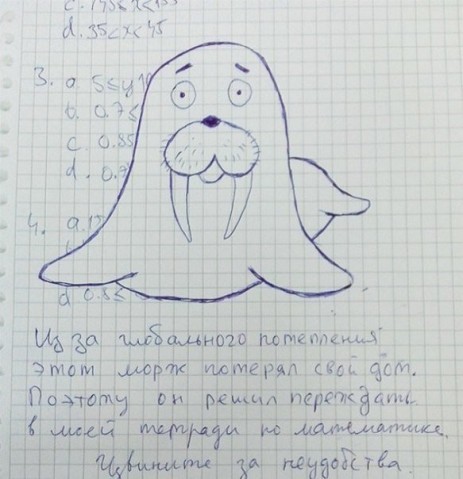 d. 35<x<45
3. a. 5≤y
b. 0.7≤
c. 0.85
d. 0.
4. a.
d 0.8≤
Из за глобального потепления
этот морж потерял свой дом.
Поэтому он решил переждать
в моей тетради по математике.
Извините за неудобства.